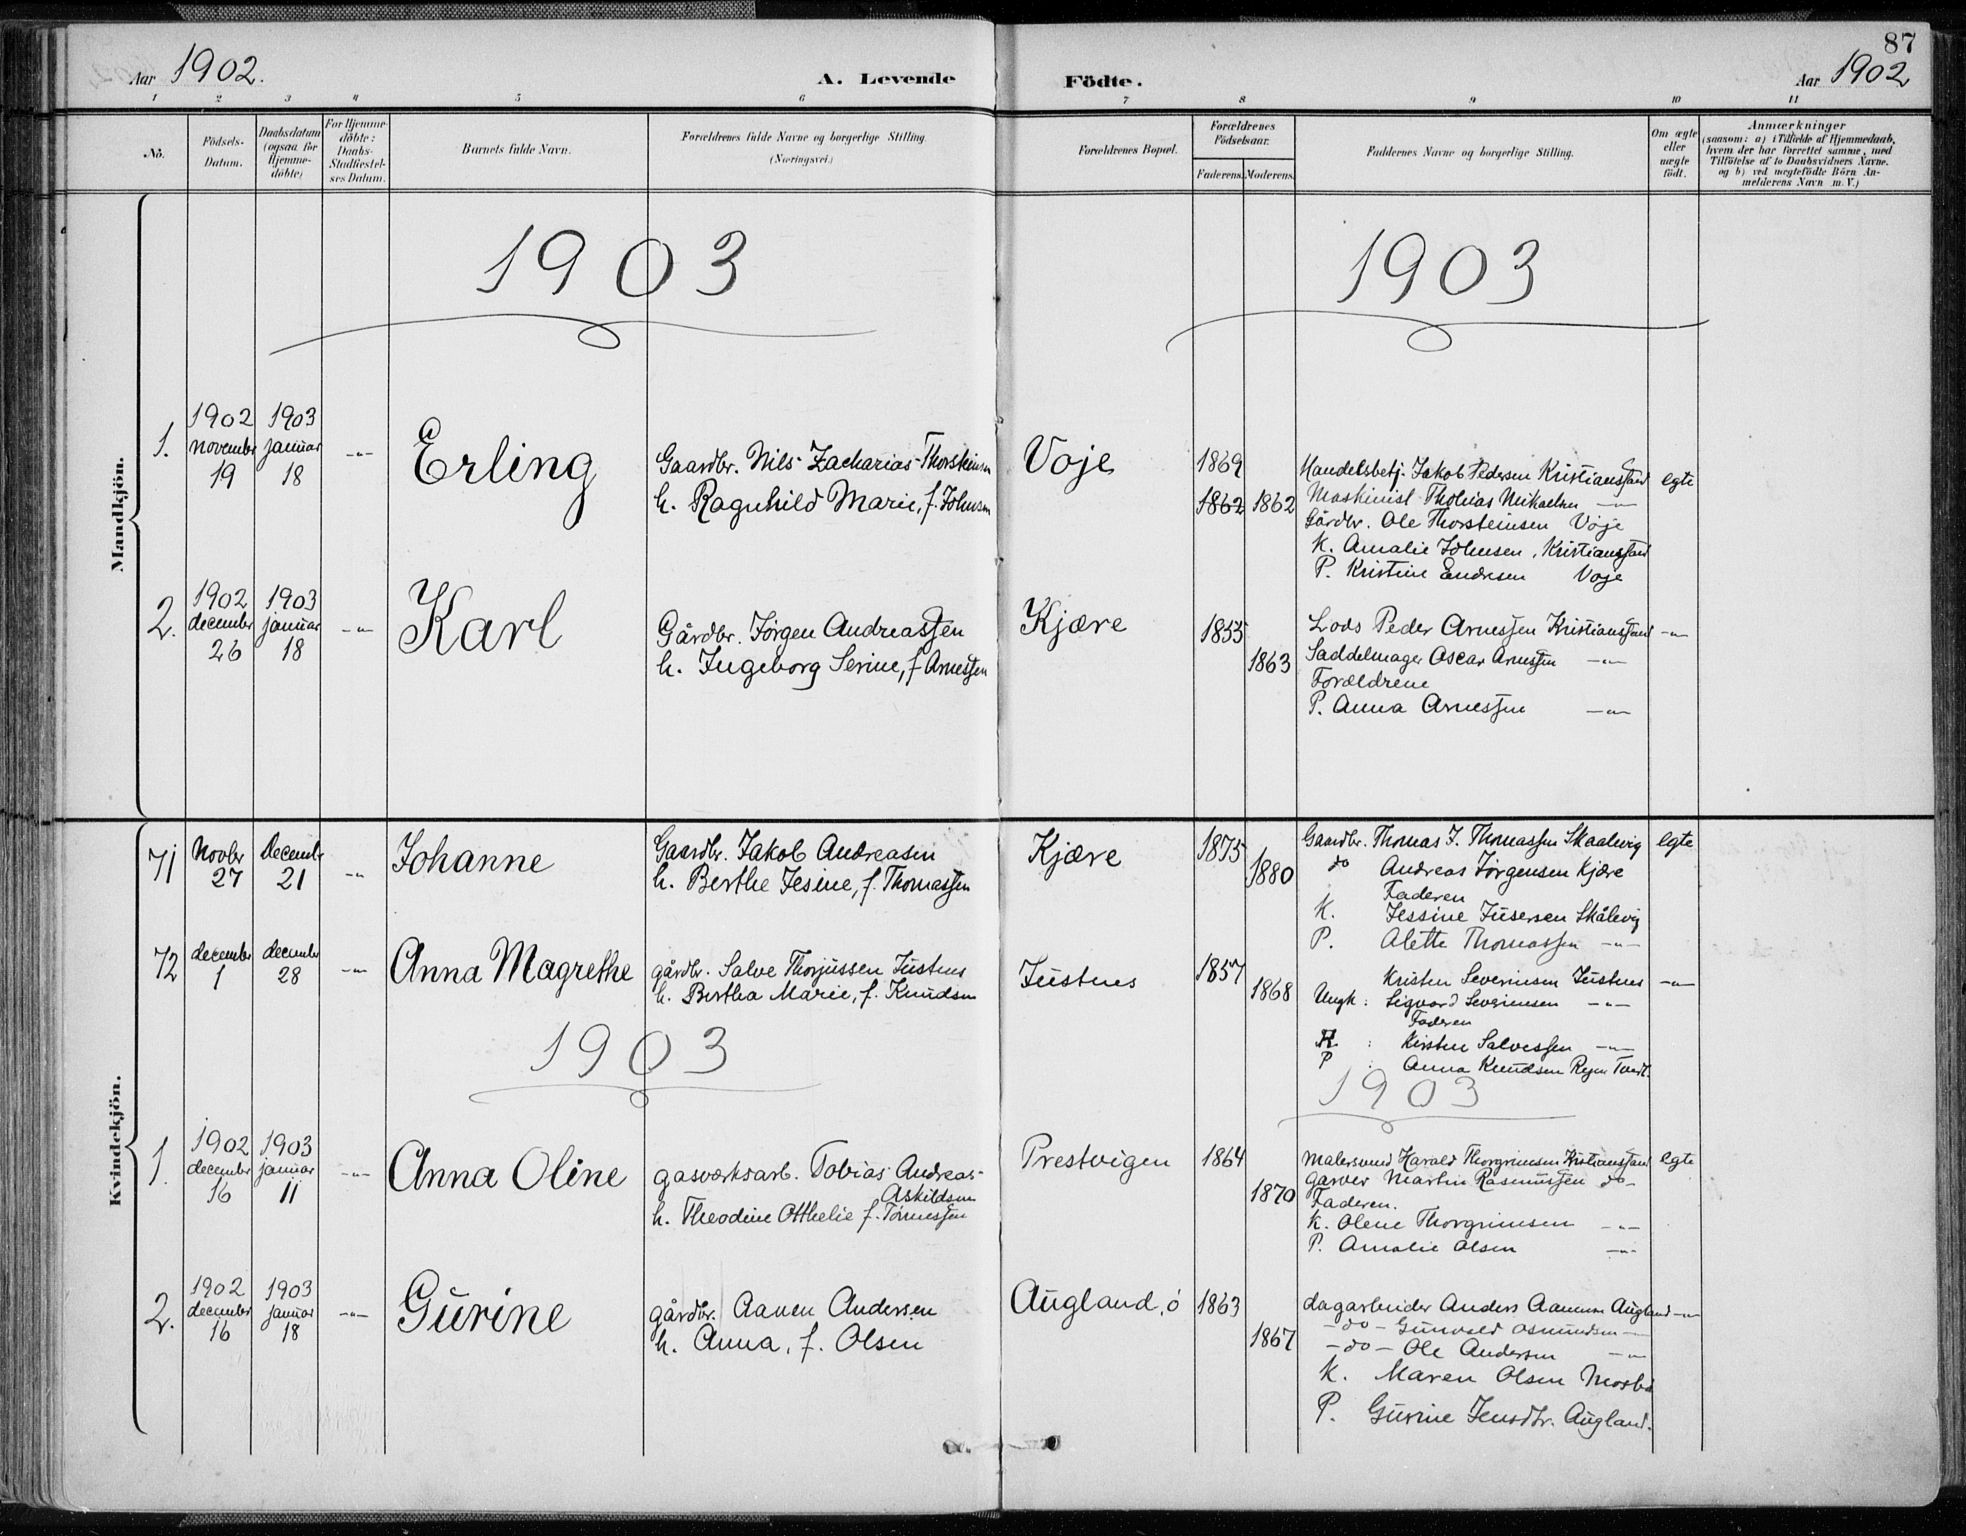 87
Aar 1902.
A. Levende Födte.
Aar 1902
1 2 3 4 5 6 7 8 9 10 11
No.
Födsels-Datum.
Daabsdatum (ogsaa for Hjemme-döbte)
For Hjemme-döbte: Daabs-Stadfæstel-ses Datum.
Barnets fulde Navn.
Forældrenes fulde Navne og borgerlige Stilling.
(Næringsvei.)
Forældrenes Bopæl.
Forældrenes Födselsaar.
Faderens. Moderens.
Faddernes Navne og borgerlige Stilling.
Om ægte eller uægte födt.
Anmærkninger
(saasom: a) i Tilfælde af Hjemmedaab,
hvem der har forrettet samme, med
Tilföielse af to Daabsvidners Navne.
og b) ved uægtefödte Börn An-
melderens Navn m. V.)
1903
1903
Mandkjön.
1. 1902 november 19
1903 januar 18
-"-
Erling
Gaardbr. Nils Zacharias Thorsteinsen
h. Ragnhild Marie, f. Johnsen
Voje
1869
1862 1862
Handelsbetj. Jakob Pedersen Kristianssand
Maskinist Thobias Mikaelsen -"-
Gårdbr. Ole Thorsteinsen Voje
K. Amalie Johnsen, Kristianssand
P. Kristine Endresen Voje
egte
2. 1902 december 26
1903 januar 18
-"-
Karl
Gårdbr. Jørgen Andreassen
h. Ingeborg Serine, f Arnessen
Kjære
1855
1863
Lods Peder Arnessen Kristianssand
Saddelmager Oscar Arnessen -"-
Forældrene
P. Anna Arnessen -"-
-"-
Kvindekjön.
71 Novbr 27
Decembr 21
-"-
Johanne
Gaardbr. Jakob Andreasen
h. Berthe Jesine, f. Thomassen
Kjære
1875
1880
Gaardbr. Thomas J. Thomassen Skaalevig
do Andreas Jørgensen Kjære
Faderen
K. Jessine Jusersen Skålevig
P. Alette Thomassen -"-
egte
72 december 1
december 28
-"-
Anna Magrethe
gårdbr. Salve Thorjussen Justnes
h. Bertha Marie, f. Knudsen
Justnes
1857
1868
Kristen Severinsen Justnes
Ungk: Sigvard Severinsen -"-
Faderen
K. : Kirsten Salvessen -"-
P : Anna Knudsen Tveit.
-"-
1903
1903
1. 1902 december 16
1903 januar 11
-"-
Anna Oline
gasværksarb. Tobias Andreas-
Askildsen
h. Theodine Otthelie f. Tønnessen
Prestvigen
1864
1870
Malersvend Harald Thorgrimsen Kristianssand
garver Martin Rasmussen do-
Faderen.
K. Olene Thorgrimsen -"-
P. Amalie Olsen -"-
egte
2. 1902 december 16
1903 januar 18
-"-
Gurine
gårdbr. Aanen Andersen
h. Anna, f. Olsen
Augland, ö
1863
1867
dagarbeider Anders Aanensen Augland
-do- Gunvald Osmundsen -"-
-do- Ole Andersen -"-
K. Maren Olsen Mosbø
P. Gurine Jensdtr. Augland.
-"-